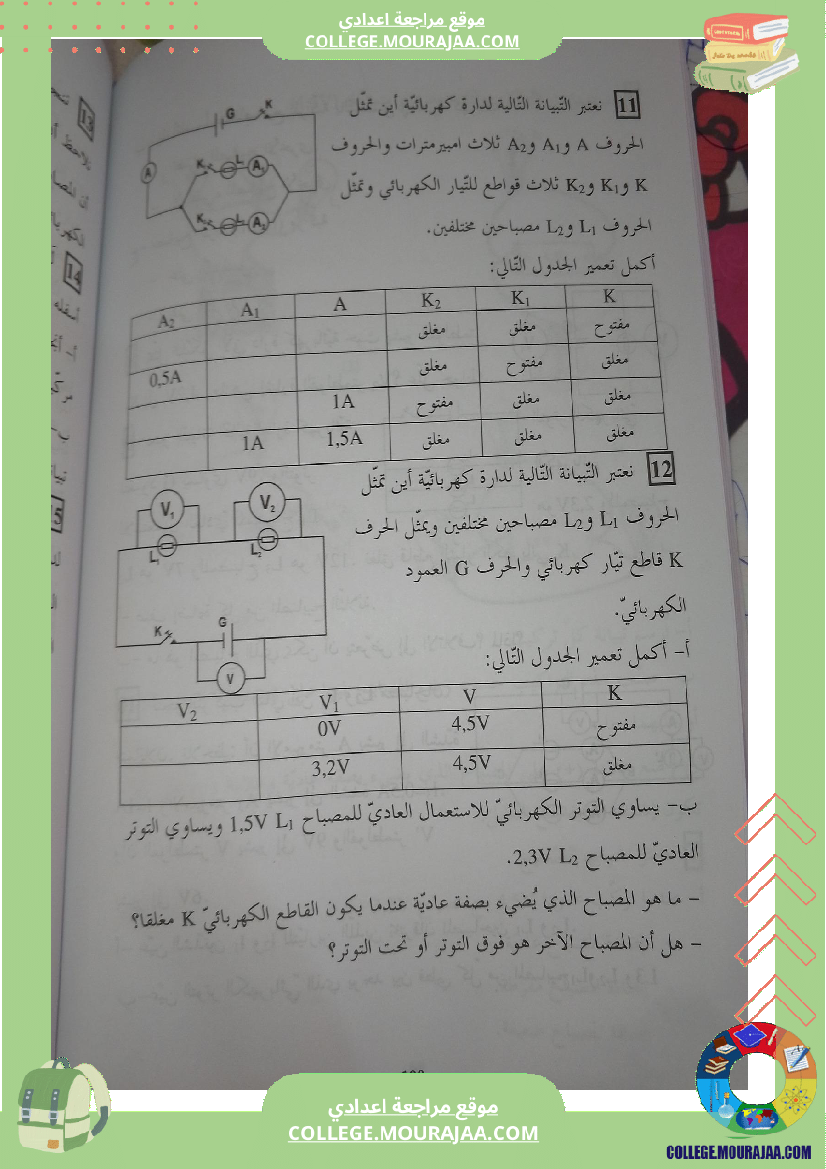 موقع مراجعة اعدادي
COLLEGE.MOURAJAA.COM
11 نعتبر التّبيانة التّالية لدارة كهربائيّة أين تمثّل
الحروف A وA₁ وA₂ ثلاث امبيرمترات والحروف
K وK₁ وK₂ ثلاث قواطع للتّيار الكهربائي وتمثّل
الحروف L₁ وL₂ مصباحين مختلفين.
G K
A K₁ L₁ A₁
K₂ L₂ A₂
أكمل تعمير الجدول التّالي:
K K₁ K₂ A A₁ A₂
مفتوح مغلق مغلق
مغلق مفتوح مغلق 0,5A
مغلق مغلق مفتوح 1A
مغلق مغلق مغلق 1,5A 1A
12 نعتبر التّبيانة التّالية لدارة كهربائيّة أين تمثّل
الحروف L₁ وL₂ مصباحين مختلفين ويمثّل الحرف
K قاطع تيّار كهربائي والحرف G العمود
الكهربائيّ.
V₁ V₂
L₁ L₂
K G
V
أ- أكمل تعمير الجدول التّالي:
K V V₁ V₂
مفتوح 4,5V 0V
مغلق 4,5V 3,2V
ب- يساوي التوتر الكهربائيّ للاستعمال العاديّ للمصباح L₁ 1,5V ويساوي التوتر
العاديّ للمصباح L₂ 2,3V.
- ما هو المصباح الذي يُضيء بصفة عاديّة عندما يكون القاطع الكهربائيّ K مغلقا؟
- هل أن المصباح الآخر هو فوق التوتر أو تحت التوتر؟
13
14
موقع مراجعة اعدادي
COLLEGE.MOURAJAA.COM
COLLEGE.MOURAJAA.COM